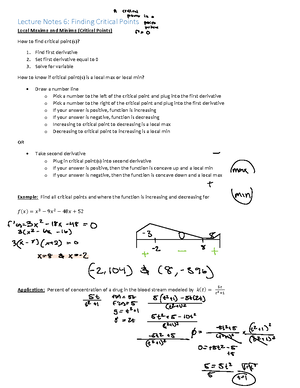 A critical
point is a
point where
f'=0
Lecture Notes 6: Finding Critical Points
Local Maxima and Minima (Critical Points)
How to find critical point(s)?
1. Find first derivative
2. Set first derivative equal to 0
3. Solve for variable
How to know if critical point(s) is a local max or local min?
• Draw a number line
o Pick a number to the left of the critical point and plug into the first derivative
o Pick a number to the right of the critical point and plug into the first derivative
o If your answer is positive, function is increasing
o If your answer is negative, function is decreasing
o Increasing to critical point to decreasing is a local max
o Decreasing to critical point to increasing is a local min
OR
• Take second derivative
o Plug in critical point(s) into second derivative
o If your answer is positive, then the function is concave up and a local min
o If your answer is negative, then the function is concave down and a local max
−
max
+
min
Example: Find all critical points and where the function is increasing and decreasing for
f(x) = x³ − 9x² − 48x + 52
f'(x)=3x²-18x-48 = 0
3(x²-6x-16)
3(x-8)(x+2) = 0
x=8 & x=-2
-3 0 8
-2 8
+ − +
(-2,104) & (8,-396)
Application: Percent of concentration of a drug in the blood stream modeled by
5t
t²+1
f=5t
f'=5
g=t²+1
g'=2t
5(t²+1)-5t(2t)
(t²+1)²
5t²+5-10t²
(t²+1)²
-5t²+5
(t²+1)²
0=-5t²+5
5=5t²
t=1